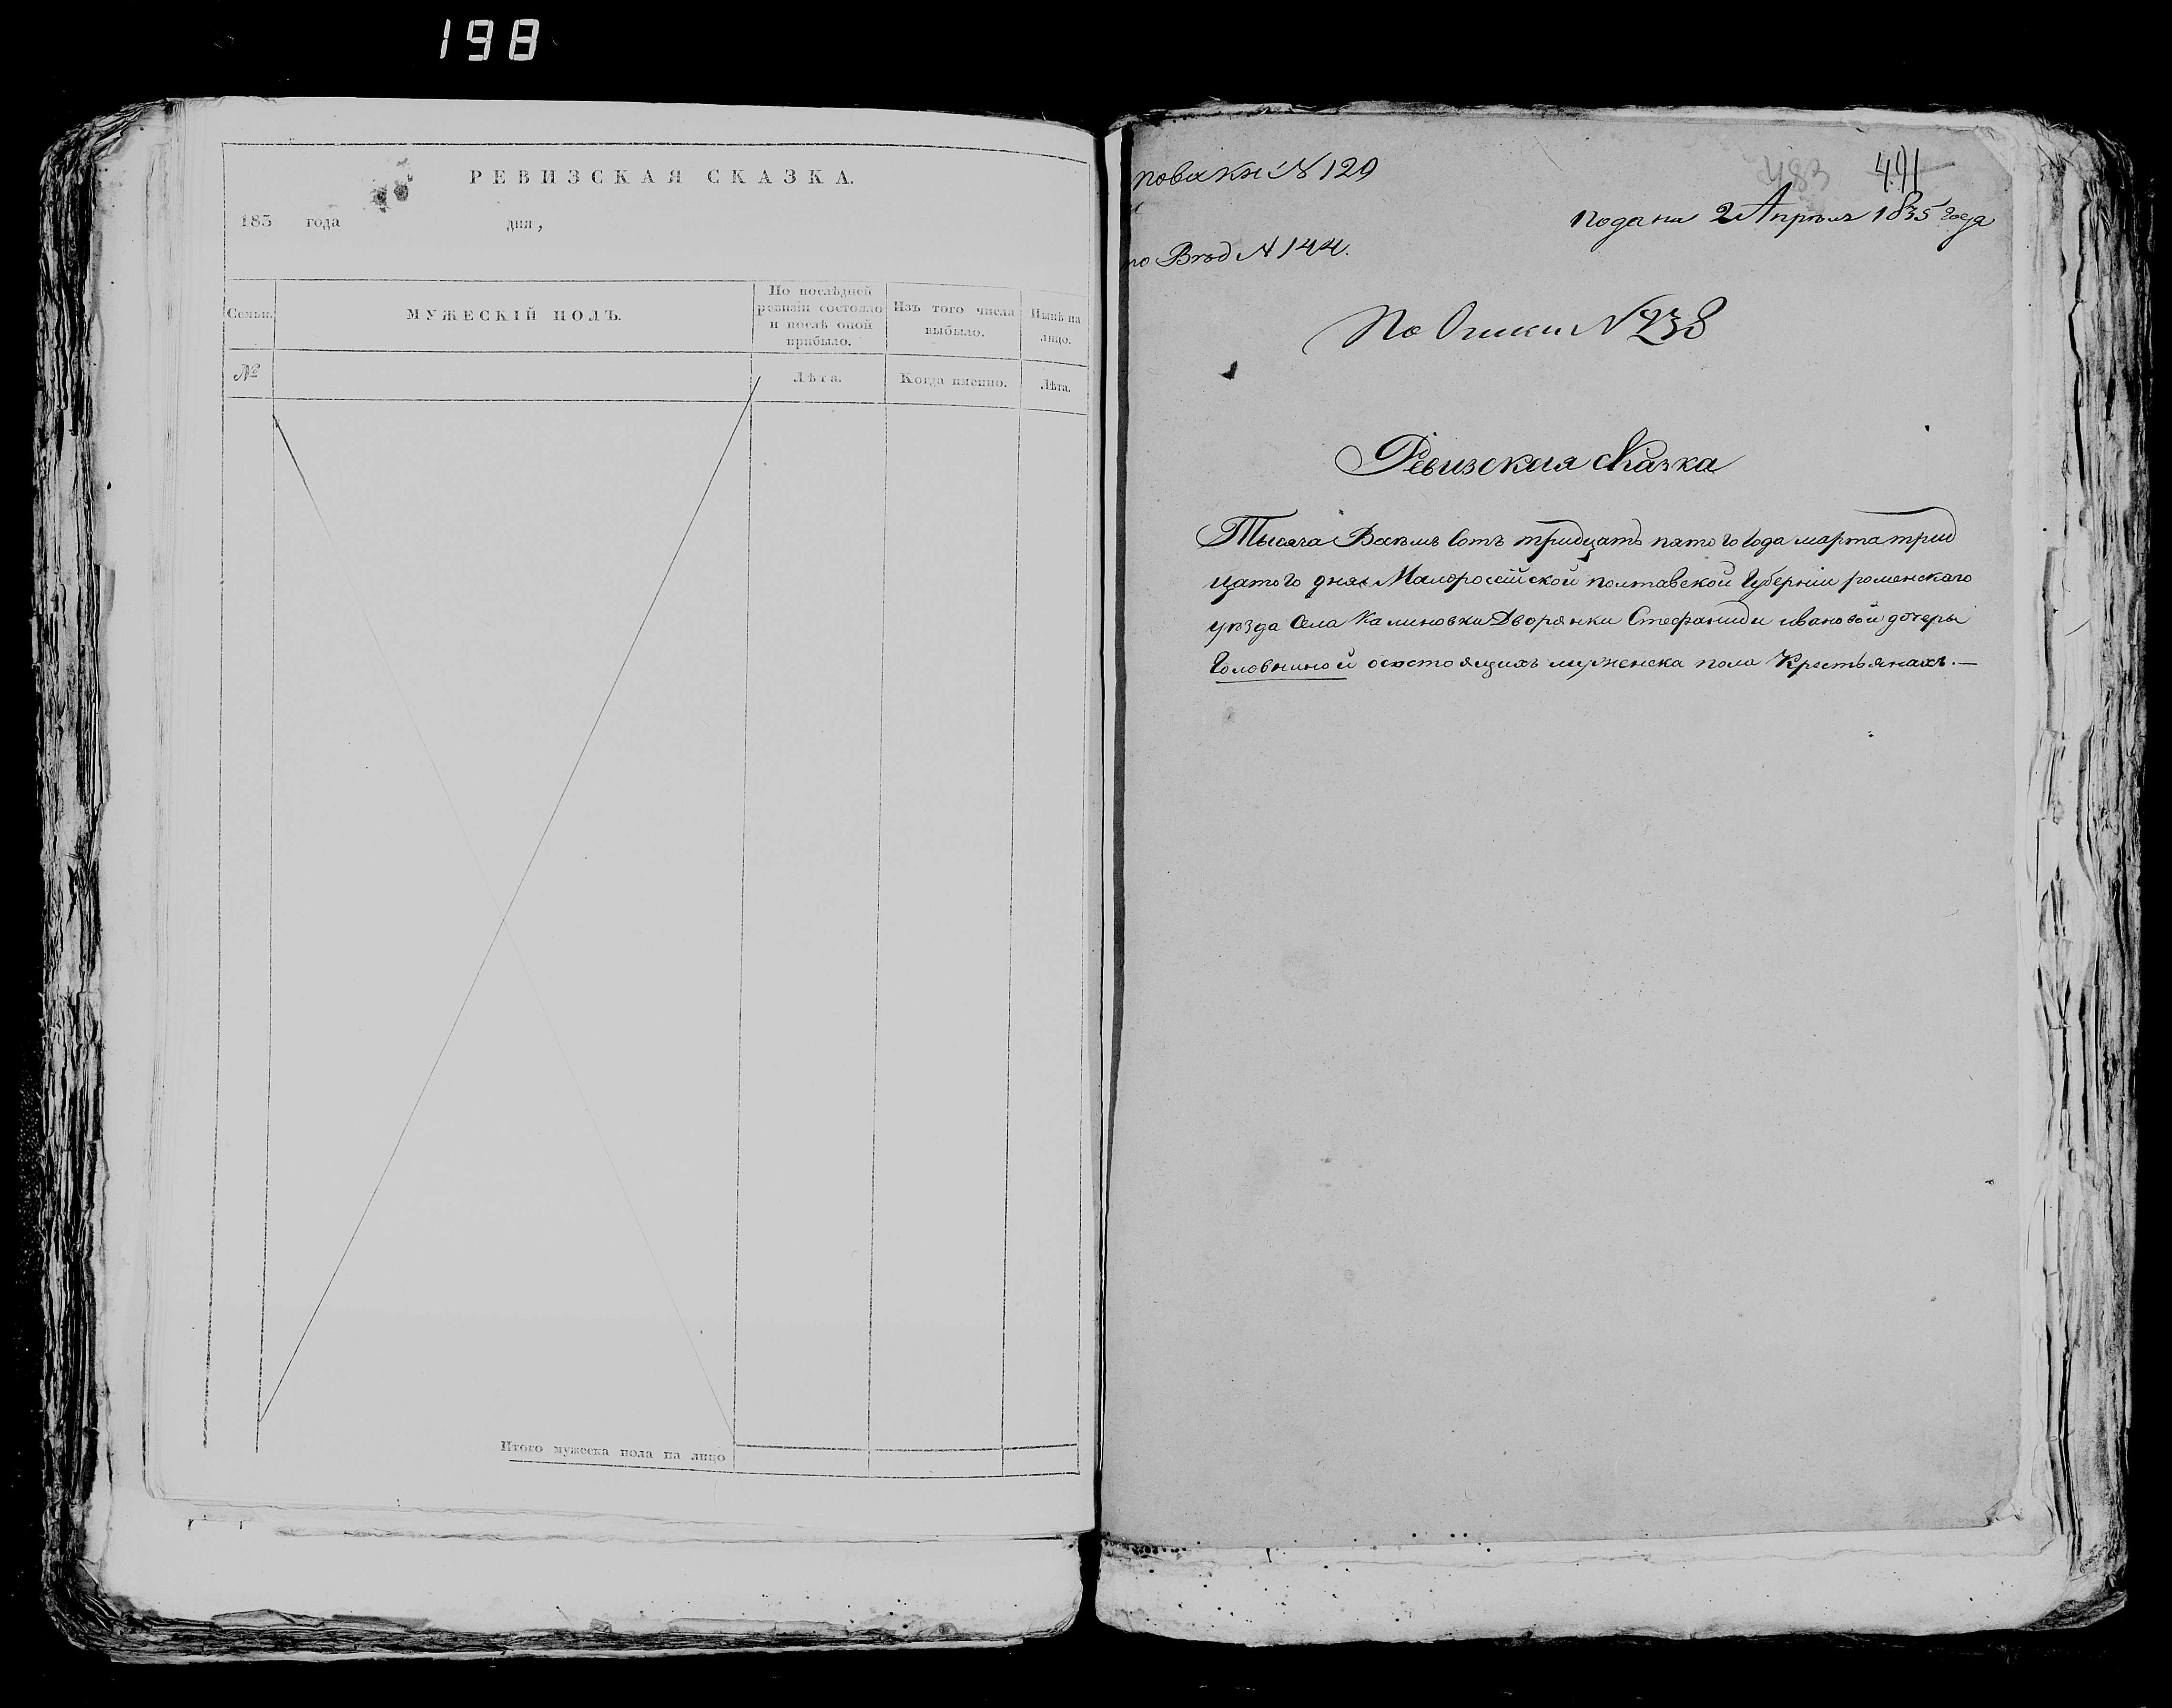 198
РЕВИЗСКАЯ СКАЗКА.
183 года дня,
Семьи.
МУЖЕСКІЙ ПОЛЪ.
По послѣдней
ревизіи состояло
и послѣ оной
прибыло.
Изъ того числа
выбыло.
Нынѣ на
лицо.
№
Лѣта.
Когда именно.
Лѣта.
Итого мужеска пола на лицо
N 129
483 491
подана 2 Апрѣля 1835 года
по Вход N 144.
По Описи N 238
Ревизская сказка
Тысяча Восемь Сотъ тридцать пятого года марта трид
цатого дня Малороссійской полтавской Губерніи роменскаго
уѣзда Села Калиновки Дворянки Стефаниды ивановой дочеры
Головниной осостоящихъ мужеска пола Крестьянахъ.—